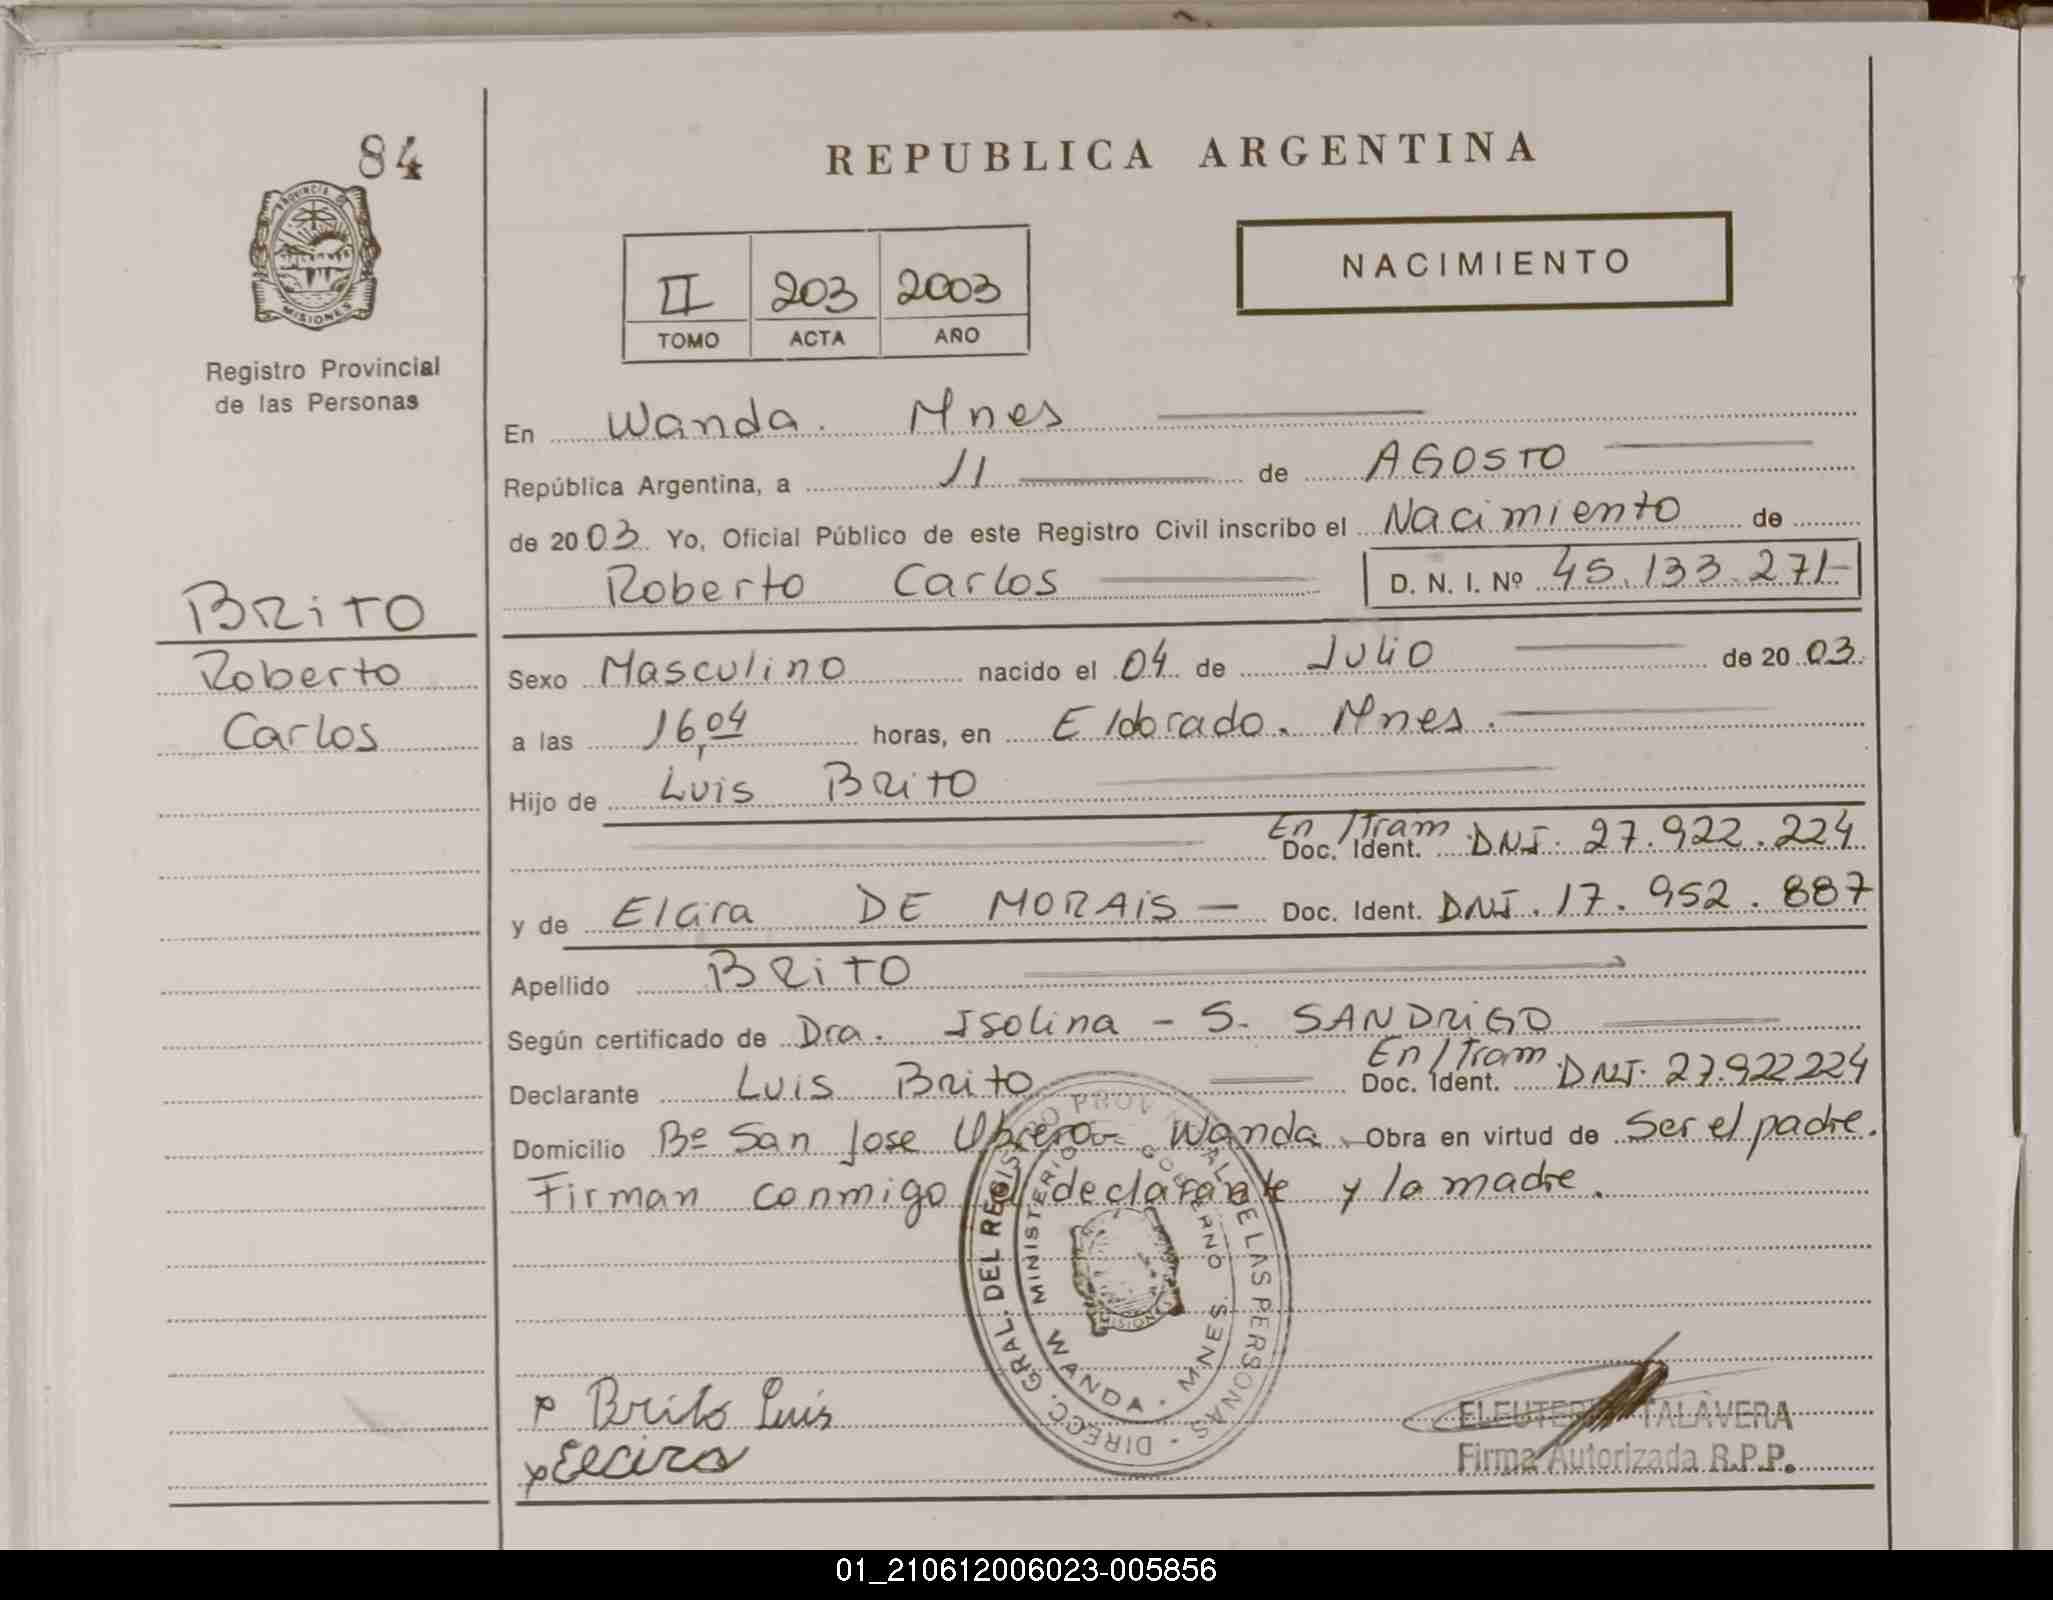 84
PROVINCIA DE
MISIONES
Registro Provincial
de las Personas
BRITO
Roberto
Carlos
REPUBLICA ARGENTINA
II 203 2003
TOMO ACTA AÑO
NACIMIENTO
En Wanda. Mnes
República Argentina, a 11 de AGOSTO
de 2003. Yo, Oficial Público de este Registro Civil inscribo el Nacimiento de
Roberto Carlos D. N. I. Nº 45.133.271
Sexo Masculino nacido el 04 de Julio de 2003.
a las 16,04 horas, en Eldorado. Mnes.
Hijo de Luis BRITO
En /Tram
Doc. Ident. DNI. 27.922.224
y de Elcira DE MORAIS Doc. Ident. DNI. 17.952.887
Apellido BRITO
Según certificado de Dra. Isolina - S. SANDRIGO
En /Tram
Declarante Luis Brito Doc. Ident. DNI. 27.922224
Domicilio Bº San Jose Obrero - Wanda - Obra en virtud de Ser el padre.
Firman conmigo el declarante y la madre.
DIRECC. GRAL. DEL REGISTRO PROVINCIAL DE LAS PERSONAS
MINISTERIO DE GOBIERNO
WANDA - MNES.
MISIONES
x Brito Luis
x Elcira
ELEUTERIO TALAVERA
Firma Autorizada R.P.P.
01_210612006023-005856